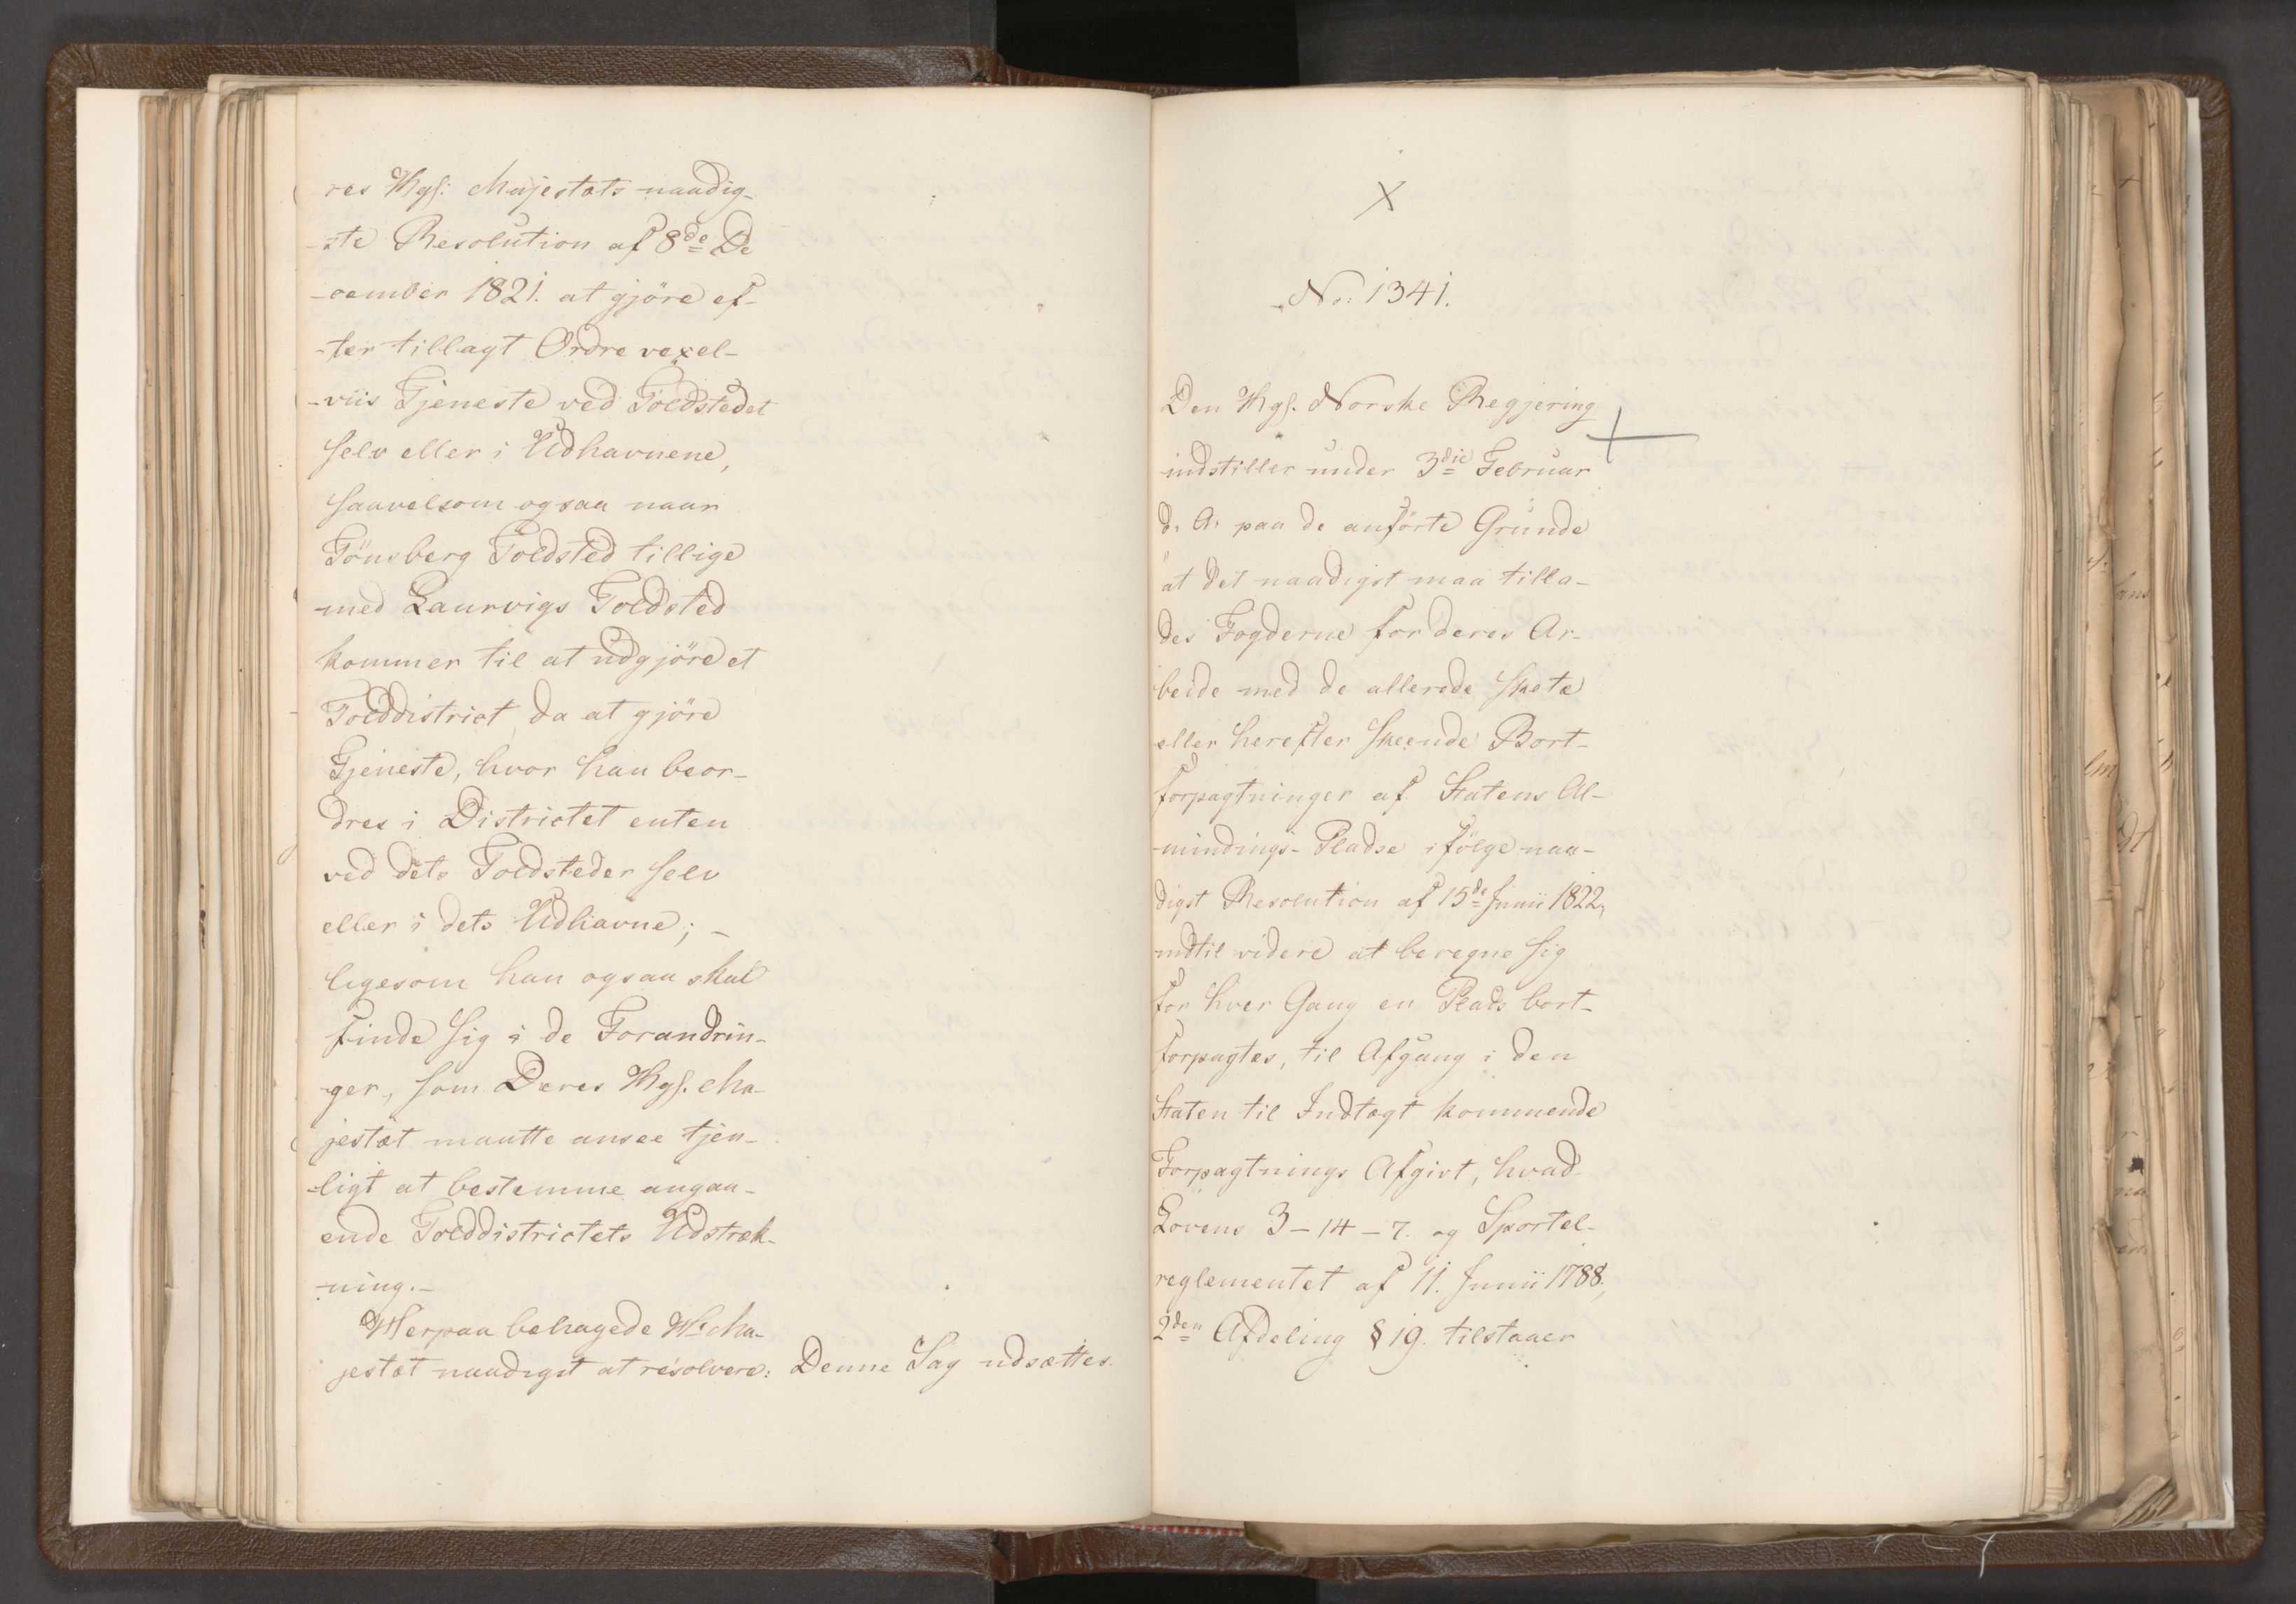 res Kgs: Majestæts naadig-
-ste Resolution af 8de De
-cember 1821. at gjöre ef-
-ter tillagt Ordre vexel-
-viis Tjeneste ved Toldstedet
selv eller i Udhavnene,
saavelsom ogsaa naar
Tönsberg Toldsted tillige
med Laurvigs Toldsted
kommer til at udgjöre et
Tolddistrict da at gjöre
Tjeneste, hvor han beor-
dres i Districtet enten
ved dets Toldsteder selv
eller i dets Udhavne; -
ligesom han ogsaa skal
finde sig i de Forandrin-
-ger, som Deres Kgs. Ma-
jestæt maatte ansee tjen-
-ligt at bestemme angaa-
ende Tolddistrictets Udstræk-
-ning.-
Herpaa behagede H: Ma-
jestæt naadigst at resolvere: Denne Sag udsættes.
X
No: 1341.
Den Kgs. Norske Regjering
indstiller under 3die Februar
d: A: paa de anförte Grunde
"at det naadigst maa tilla-
des Fogderne for deres Ar-
beide med de allerede skete
eller herefter skeende Bort-
forpagtninger af Statens Al-
mindings-Pladse i fölge naa-
digst Resolution af 15de Junii 1822,
indtil videre at beregne sig
for hver Gang en Plads bort-
forpagtes, til Afgang i den
Staten til Indtægt kommende
Forpagtnings Afgivt, hvad
Lovens 3-14-7. og Sportel-
reglementet af 11. Junii 1788,
2den Afdeling § 19. tilstaaer